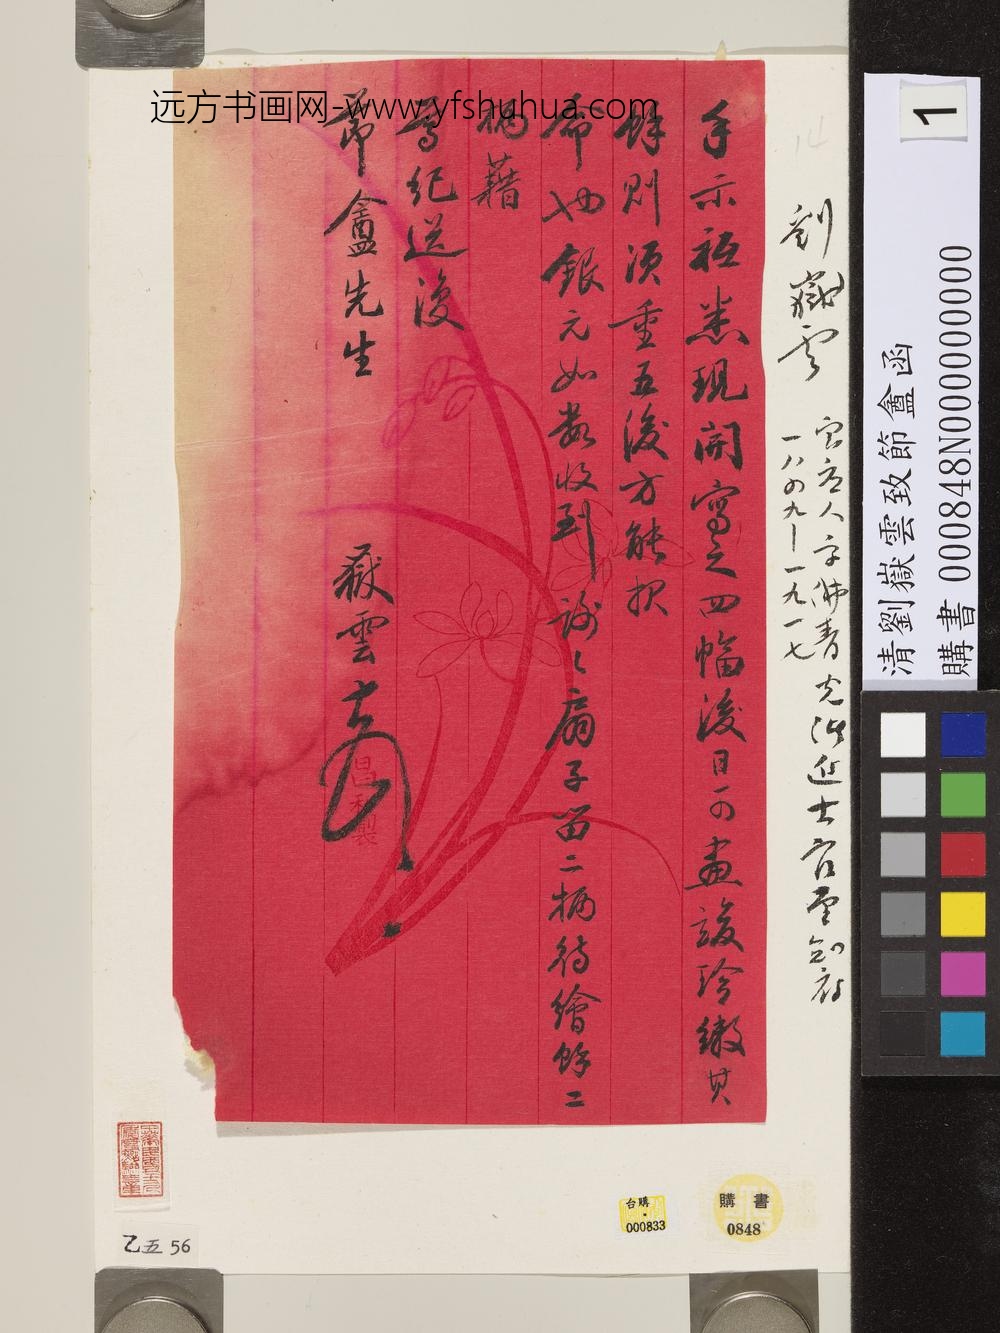 远方书画网-www.yfshuhua.com
手示祗悉現開寫之四幅後日可畫竣珍繳其
餘則須重五後方能报
命也銀元如數收到謝〻扇子留二柄待繪餘二
柄藉
尊紀送復
節盦先生
嶽雲
昌和製
劉嶽雲
字佛青光緒進士官至知府
一八四九－一九一七
1
清劉嶽雲致節盦函
購書 000848N000000000
台購
000833
購書
0848
乙五 56